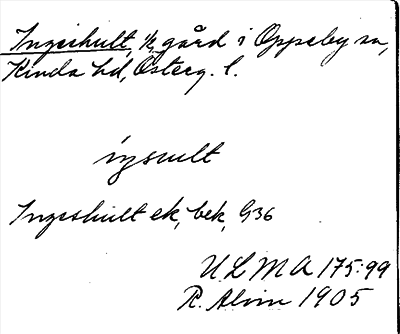 Ingeshult, 1/2 gård i Oppeby sn,
Kinda hd, Österg. l.
ı́ŋsult
Ingeshult ek, bek, G36
ULMA 175:99
R. Alvin 1905